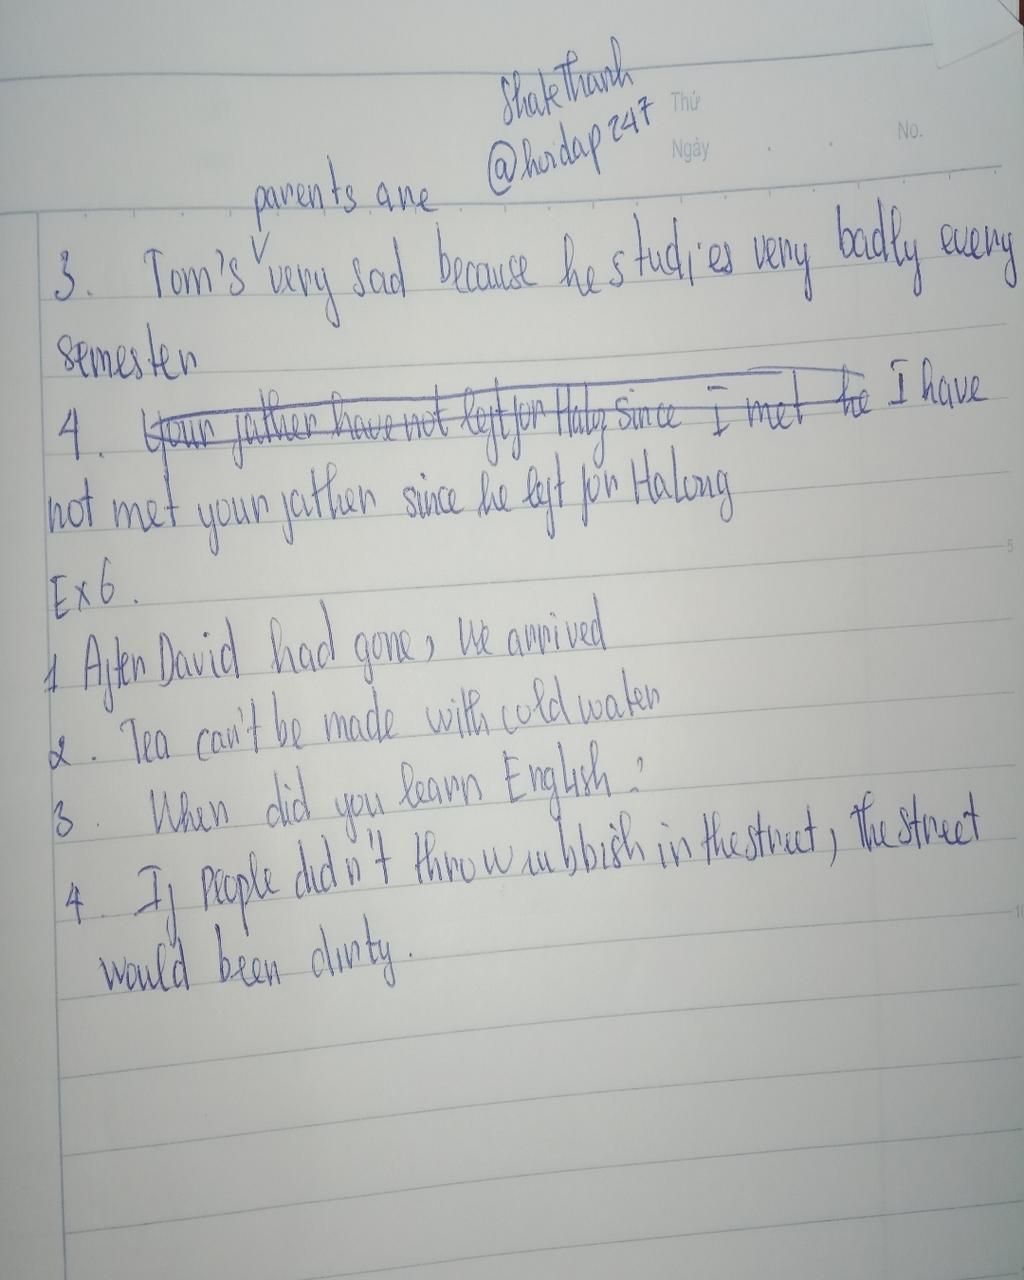 ShakeThanh
@hoidap247
Thứ
Ngày
No.
parents are
3. Tom's very sad because he studies very badly every
semester
4. Your father have not left for Halog since I met he I have
not met your father since he left for Halong
5
Ex6.
1 After David had gone, We arrived
2. Tea can't be made with cold water
3. When did you learn English?
4. If people didn't throw rubbish in the street, the street
10
would been dirty.